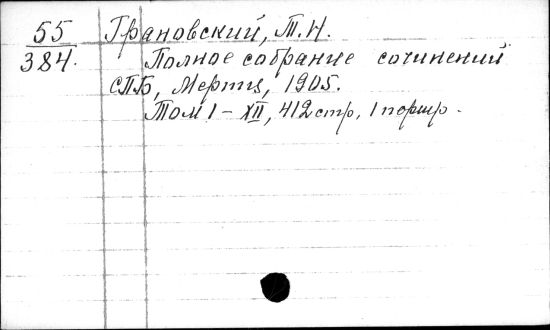 55
384.
Грановский, Т. Н.
Полное собрание сочинений
СПБ, Мертц, 1905.
Том I – XII, 412 стр, 1 портр.